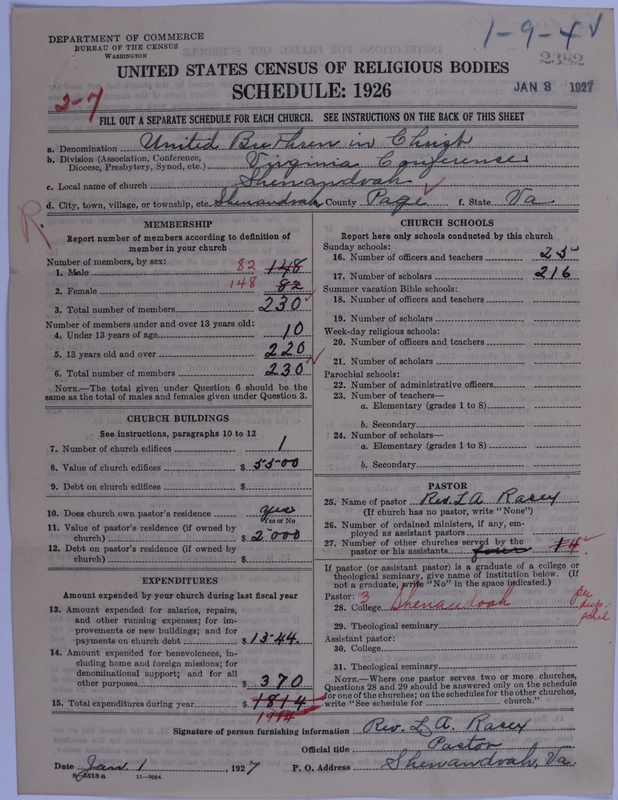 DEPARTMENT OF COMMERCE
BUREAU OF THE CENSUS
WASHINGTON
1-9-4 √
2382
UNITED STATES CENSUS OF RELIGIOUS BODIES
SCHEDULE: 1926
JAN 3 1927
2-7
FILL OUT A SEPARATE SCHEDULE FOR EACH CHURCH. SEE INSTRUCTIONS ON THE BACK OF THIS SHEET
a. Denomination United Brethren in Christ
b. Division (Association, Conference, Diocese, Presbytery, Synod, etc.) Virginia Conference
c. Local name of church Shenandoah
d. City, town, village, or township, etc. Shenandoah County Page √ f. State Va
R
MEMBERSHIP
Report number of members according to definition of member in your church
Number of members, by sex:
1. Male 82 148
2. Female 148 82
3. Total number of members 230 √
Number of members under and over 13 years old:
4. Under 13 years of age 10
5. 13 years old and over 220
6. Total number of members 230 √
NOTE.—The total given under Question 6 should be the same as the total of males and females given under Question 3.
CHURCH BUILDINGS
See instructions, paragraphs 10 to 12
7. Number of church edifices 1
8. Value of church edifices $ 5500
9. Debt on church edifices $
10. Does church own pastor's residence yes
Yes or No
11. Value of pastor's residence (if owned by church) $ 2000
12. Debt on pastor's residence (if owned by church) $
EXPENDITURES
Amount expended by your church during last fiscal year
13. Amount expended for salaries, repairs, and other running expenses; for improvements or new buildings; and for payments on church debt $ 1544.
14. Amount expended for benevolences, including home and foreign missions; for denominational support; and for all other purposes $ 370
15. Total expenditures during year $ 1814
1914
CHURCH SCHOOLS
Report here only schools conducted by this church
Sunday schools:
16. Number of officers and teachers 25
17. Number of scholars 216
Summer vacation Bible schools:
18. Number of officers and teachers
19. Number of scholars
Week-day religious schools:
20. Number of officers and teachers
21. Number of scholars
Parochial schools:
22. Number of administrative officers
23. Number of teachers—
a. Elementary (grades 1 to 8)
b. Secondary
24. Number of scholars—
a. Elementary (grades 1 to 8)
b. Secondary
PASTOR
25. Name of pastor Rev. L A Racey
(If church has no pastor, write "None")
26. Number of ordained ministers, if any, employed as assistant pastors
27. Number of other churches served by the pastor or his assistants four 14
If pastor (or assistant pastor) is a graduate of a college or theological seminary, give name of institution below. (If not a graduate, write "No" in the space indicated.)
Pastor: 3
28. College Shenandoah
29. Theological seminary
Assistant pastor:
30. College
31. Theological seminary
NOTE.—Where one pastor serves two or more churches, Questions 28 and 29 should be answered only on the schedule for one of the churches; on the schedules for the other churches, write "See schedule for church."
Signature of person furnishing information Rev. L. A. Racey
Official title Pastor
Date Jan. 1, 1927 P. O. Address Shenandoah, Va.
8-5518 a 11-9034